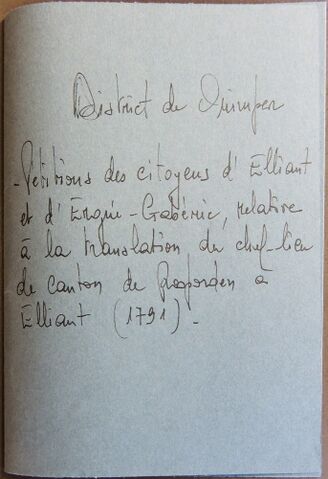 District de Quimper
- Pétitions des citoyens d'Elliant
et d'Ergué-Gabéric, relative
à la translation du chef-lieu
de canton de Rosporden à
Elliant (1791).